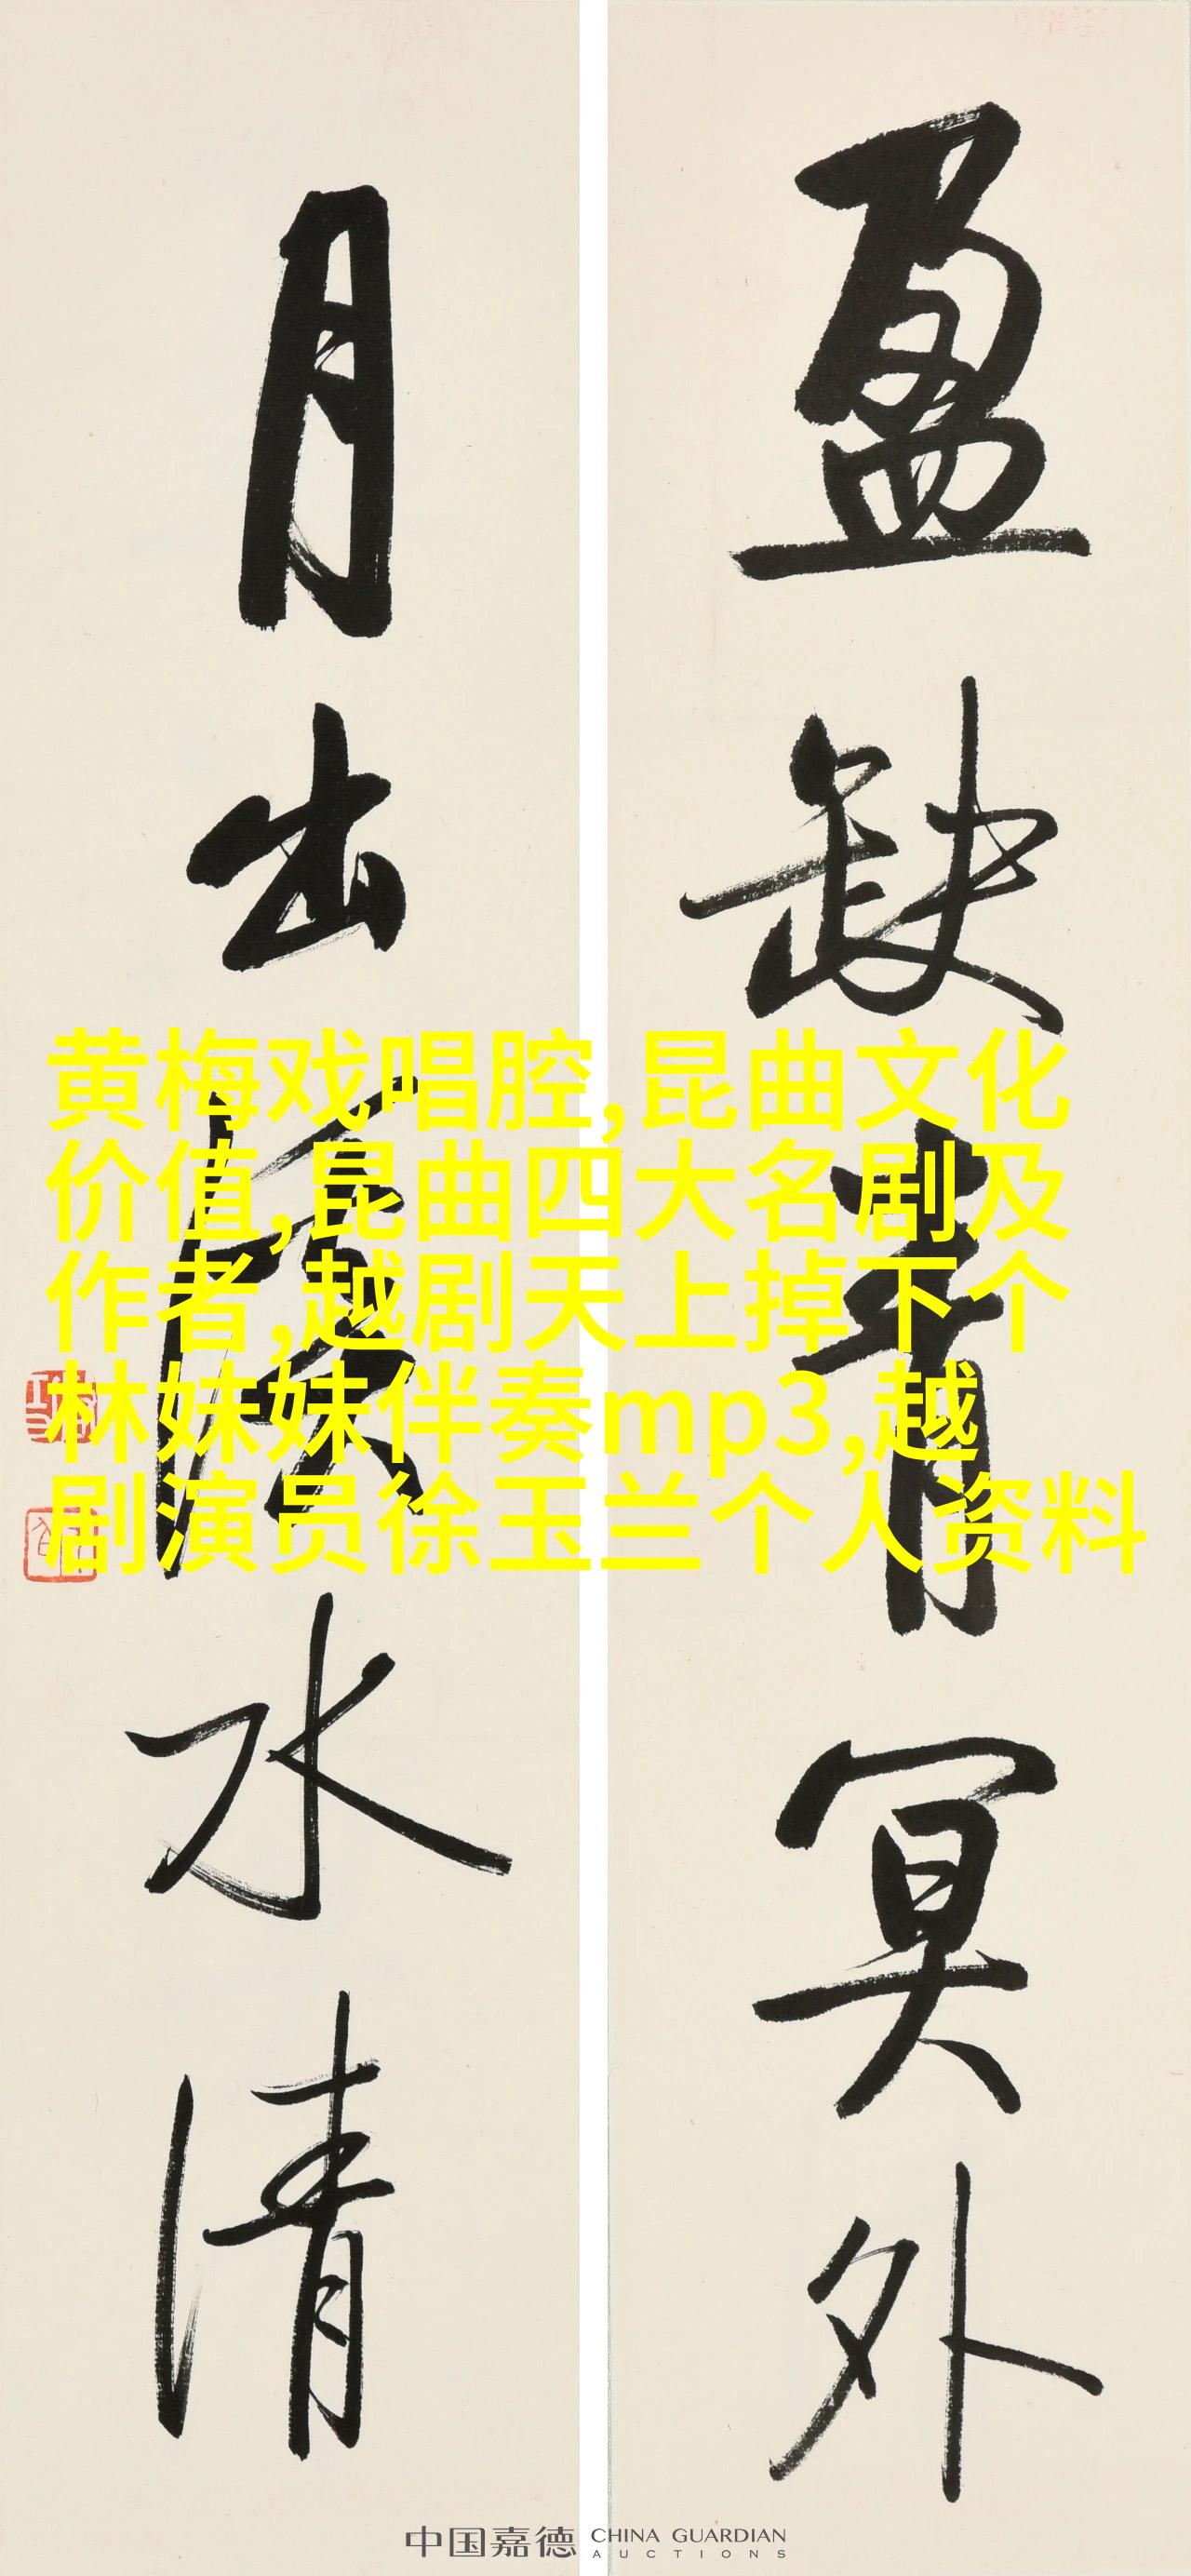 盈缺青冥外
月出
水清
黄梅戏唱腔,昆曲文化
价值,昆曲四大名剧及
作者,越剧天上掉下个
林妹妹伴奏mp3,越
剧演员徐玉兰个人资料
中国嘉德 CHINA GUARDIAN
AUCTIONS